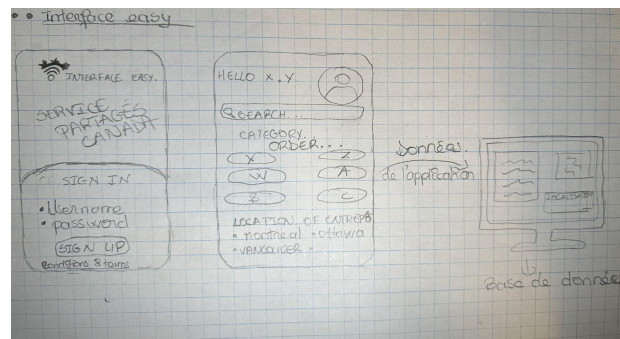 Interface easy
INTERFACE EASY.
SERVICE
PARTAGÉS
CANADA
SIGN IN
• Username
• password
SIGN UP
Conditions & terms
HELLO X.Y
SEARCH...
CATEGORY.
ORDER...
X Z
W A
B C
LOCATION OF ENTREPÔ
• montreal • ottawa
• VANCOUVER -
Données
de l'application
LOCALISATION
Base de donnée